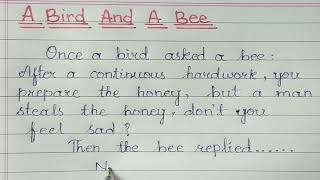 A Bird And A Bee
Once a bird asked a bee:
After a continuous hardwork, you
prepare the honey, but a man
steals the honey, don't you
feel sad?
Then the bee replied......
N